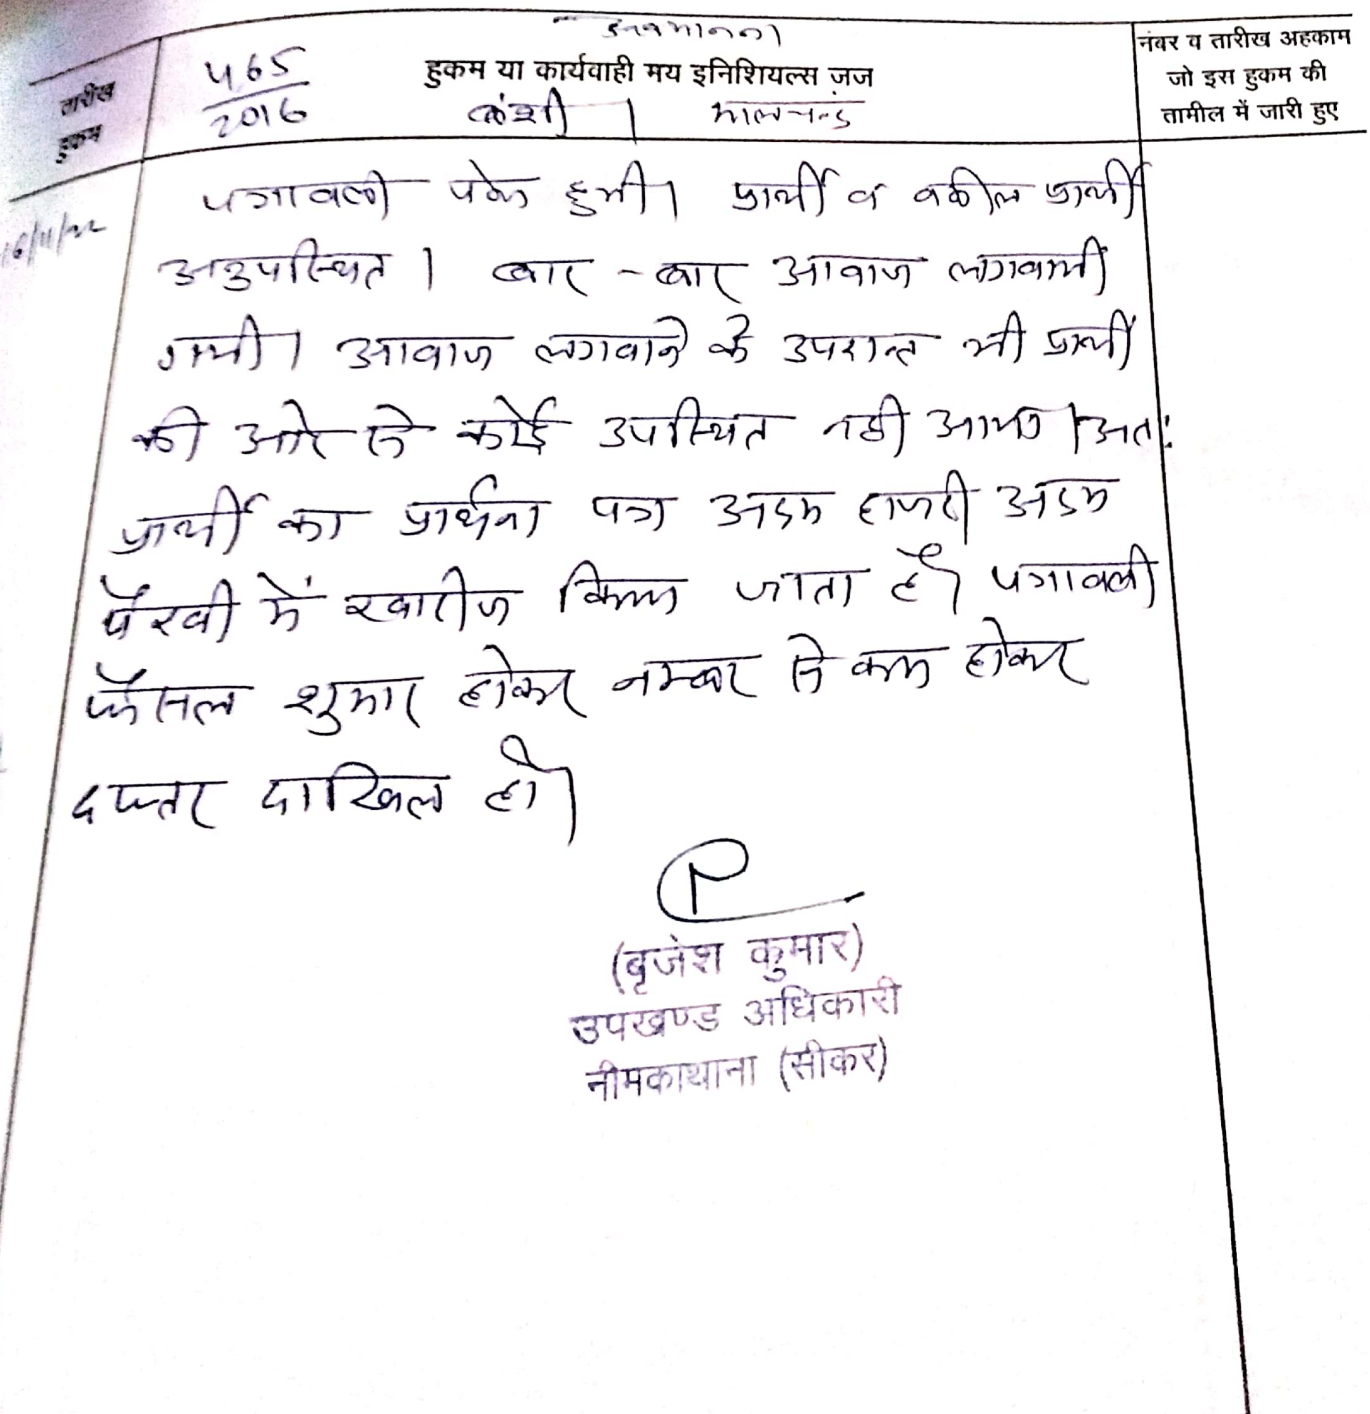 अवमानना
465/2016
हुकम या कार्यवाही मय इनिशियल्स जज
नंबर व तारीख अहकाम
जो इस हुकम की
तामील में जारी हुए
तारीख
हुकम
बंशी / मालचन्द
16/11/22
पत्रावली पेश हुयी। प्रार्थी व वकील प्रार्थी
अनुपस्थित। बार-बार आवाज लगवायी
गयी। आवाज लगवाने के उपरान्त भी प्रार्थी
की ओर से कोई उपस्थित नही आया। अतः
प्रार्थी का प्रार्थना पत्र अदम हाजरी अदम
पैरवी में खारीज किया जाता है। पत्रावली
फैसल शुमार होकर नम्बर से कम होकर
दफ्तर दाखिल हो।
(बृजेश कुमार)
उपखण्ड अधिकारी
नीमकाथाना (सीकर)